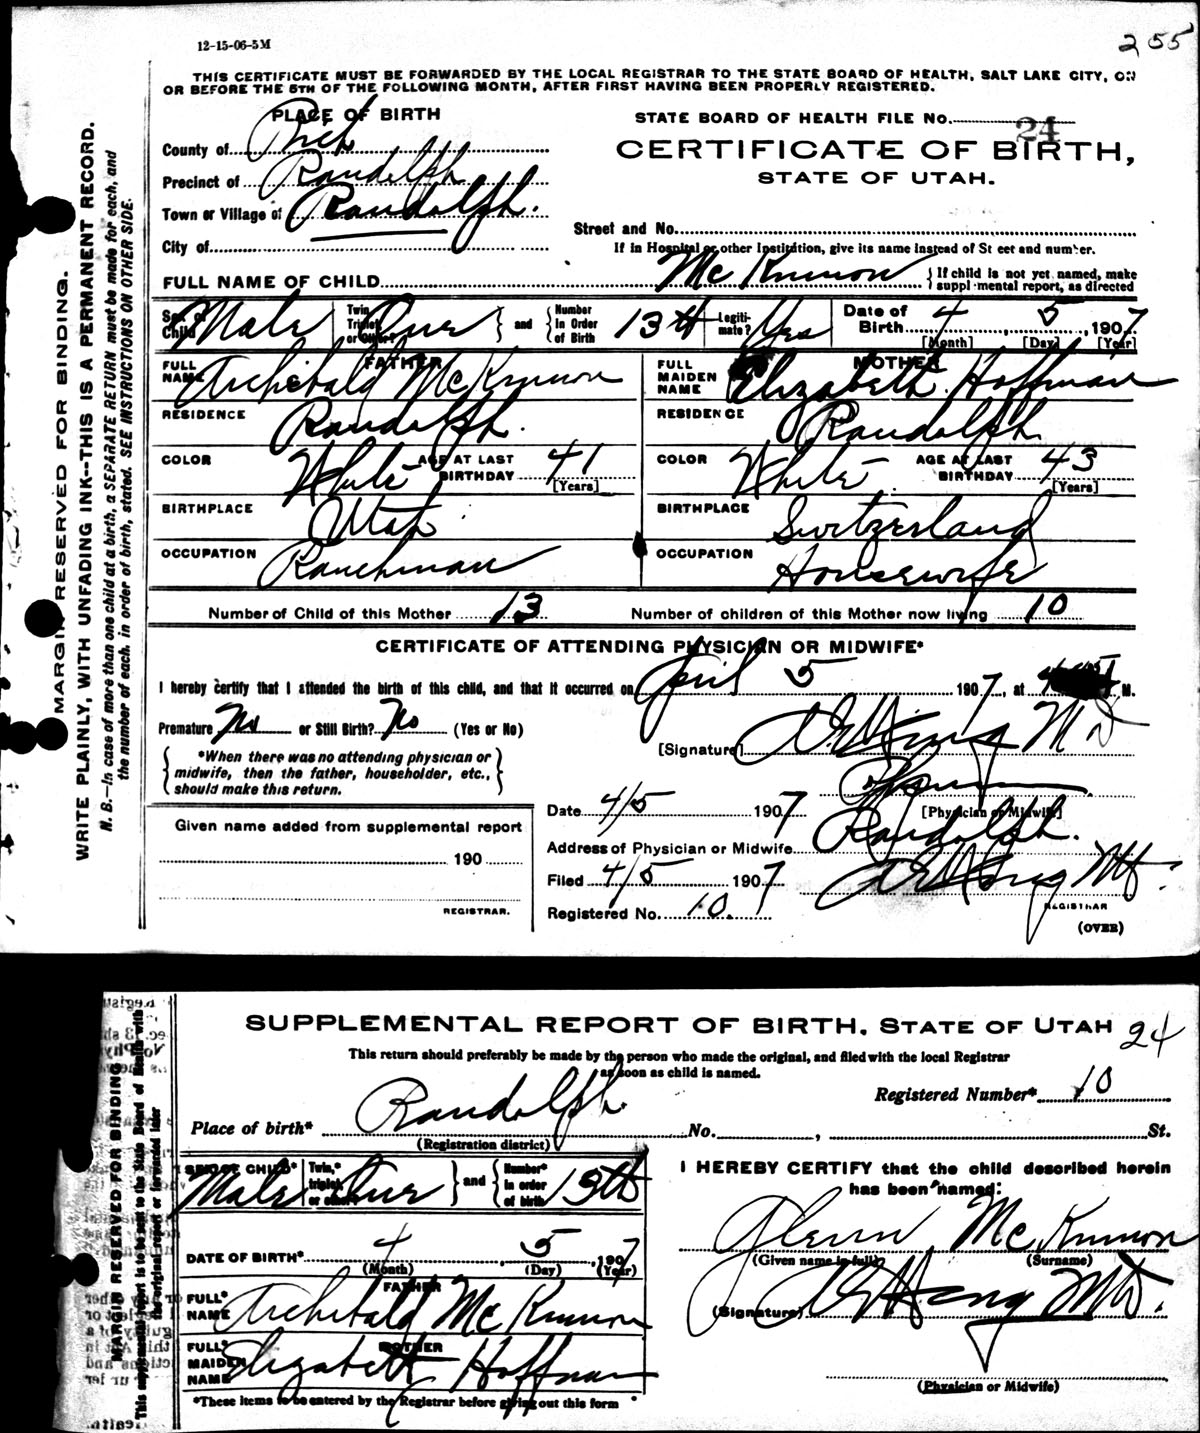 12-15-06-5M
255
THIS CERTIFICATE MUST BE FORWARDED BY THE LOCAL REGISTRAR TO THE STATE BOARD OF HEALTH, SALT LAKE CITY, ON
OR BEFORE THE 5TH OF THE FOLLOWING MONTH, AFTER FIRST HAVING BEEN PROPERLY REGISTERED.
PLACE OF BIRTH
STATE BOARD OF HEALTH FILE No. 24
County of Rich
CERTIFICATE OF BIRTH,
Precinct of Randolph
STATE OF UTAH.
Town or Village of Randolph.
Street and No.
City of
If in Hospital or other Institution, give its name instead of Street and number.
FULL NAME OF CHILD Mc Kinnon
If child is not yet named, make
supplemental report, as directed
Sex of Child Male Twin, Triplet or Other? and Number in Order of Birth 13th Legitimate? Yes Date of Birth 4 5, 1907
[Month] [Day] [Year]
FATHER
MOTHER
FULL NAME Archibald McKinnon
FULL MAIDEN NAME Elizabeth Hoffman
RESIDENCE Randolph.
RESIDENCE Randolph
COLOR White AGE AT LAST BIRTHDAY 41 [Years]
COLOR White. AGE AT LAST BIRTHDAY 43 [Years]
BIRTHPLACE Utah
BIRTHPLACE Switzerland
OCCUPATION Ranchman
OCCUPATION Housewife
Number of Child of this Mother 13 Number of children of this Mother now living 10
CERTIFICATE OF ATTENDING PHYSICIAN OR MIDWIFE*
I hereby certify that I attended the birth of this child, and that it occurred on April 5 1907, at M.
Premature No or Still Birth? No (Yes or No)
[Signature] M D
*When there was no attending physician or
midwife, then the father, householder, etc.,
should make this return.
[Physician or Midwife]
Date 4/5 1907
Address of Physician or Midwife Randolph.
Filed 4/5 1907
REGISTRAR
Registered No. 10.
(OVER)
Given name added from supplemental report
190
REGISTRAR.
MARGIN RESERVED FOR BINDING.
WRITE PLAINLY, WITH UNFADING INK--THIS IS A PERMANENT RECORD.
N. B.--In case of more than one child at a birth, a SEPARATE RETURN must be made for each, and
the number of each, in order of birth, stated. SEE INSTRUCTIONS ON OTHER SIDE.
SUPPLEMENTAL REPORT OF BIRTH, STATE OF UTAH 24
This return should preferably be made by the person who made the original, and filed with the local Registrar
as soon as child is named.
Registered Number* 10
Place of birth* Randolph No. , St.
(Registration district)
SEX OF CHILD* Male Twin,* triplet or other? and Number* in order of birth 13th
I HEREBY CERTIFY that the child described herein
has been named:
Glenn McKinnon
(Given name in full) (Surname)
DATE OF BIRTH* 4 5, 1907
(Month) (Day) (Year)
FATHER
FULL* NAME Archibald McKinnon
(Signature) MD.
MOTHER
FULL* MAIDEN NAME Elizabeth Hoffman
(Physician or Midwife)
*These items to be entered by the Registrar before giving out this form
MARGIN RESERVED FOR BINDING